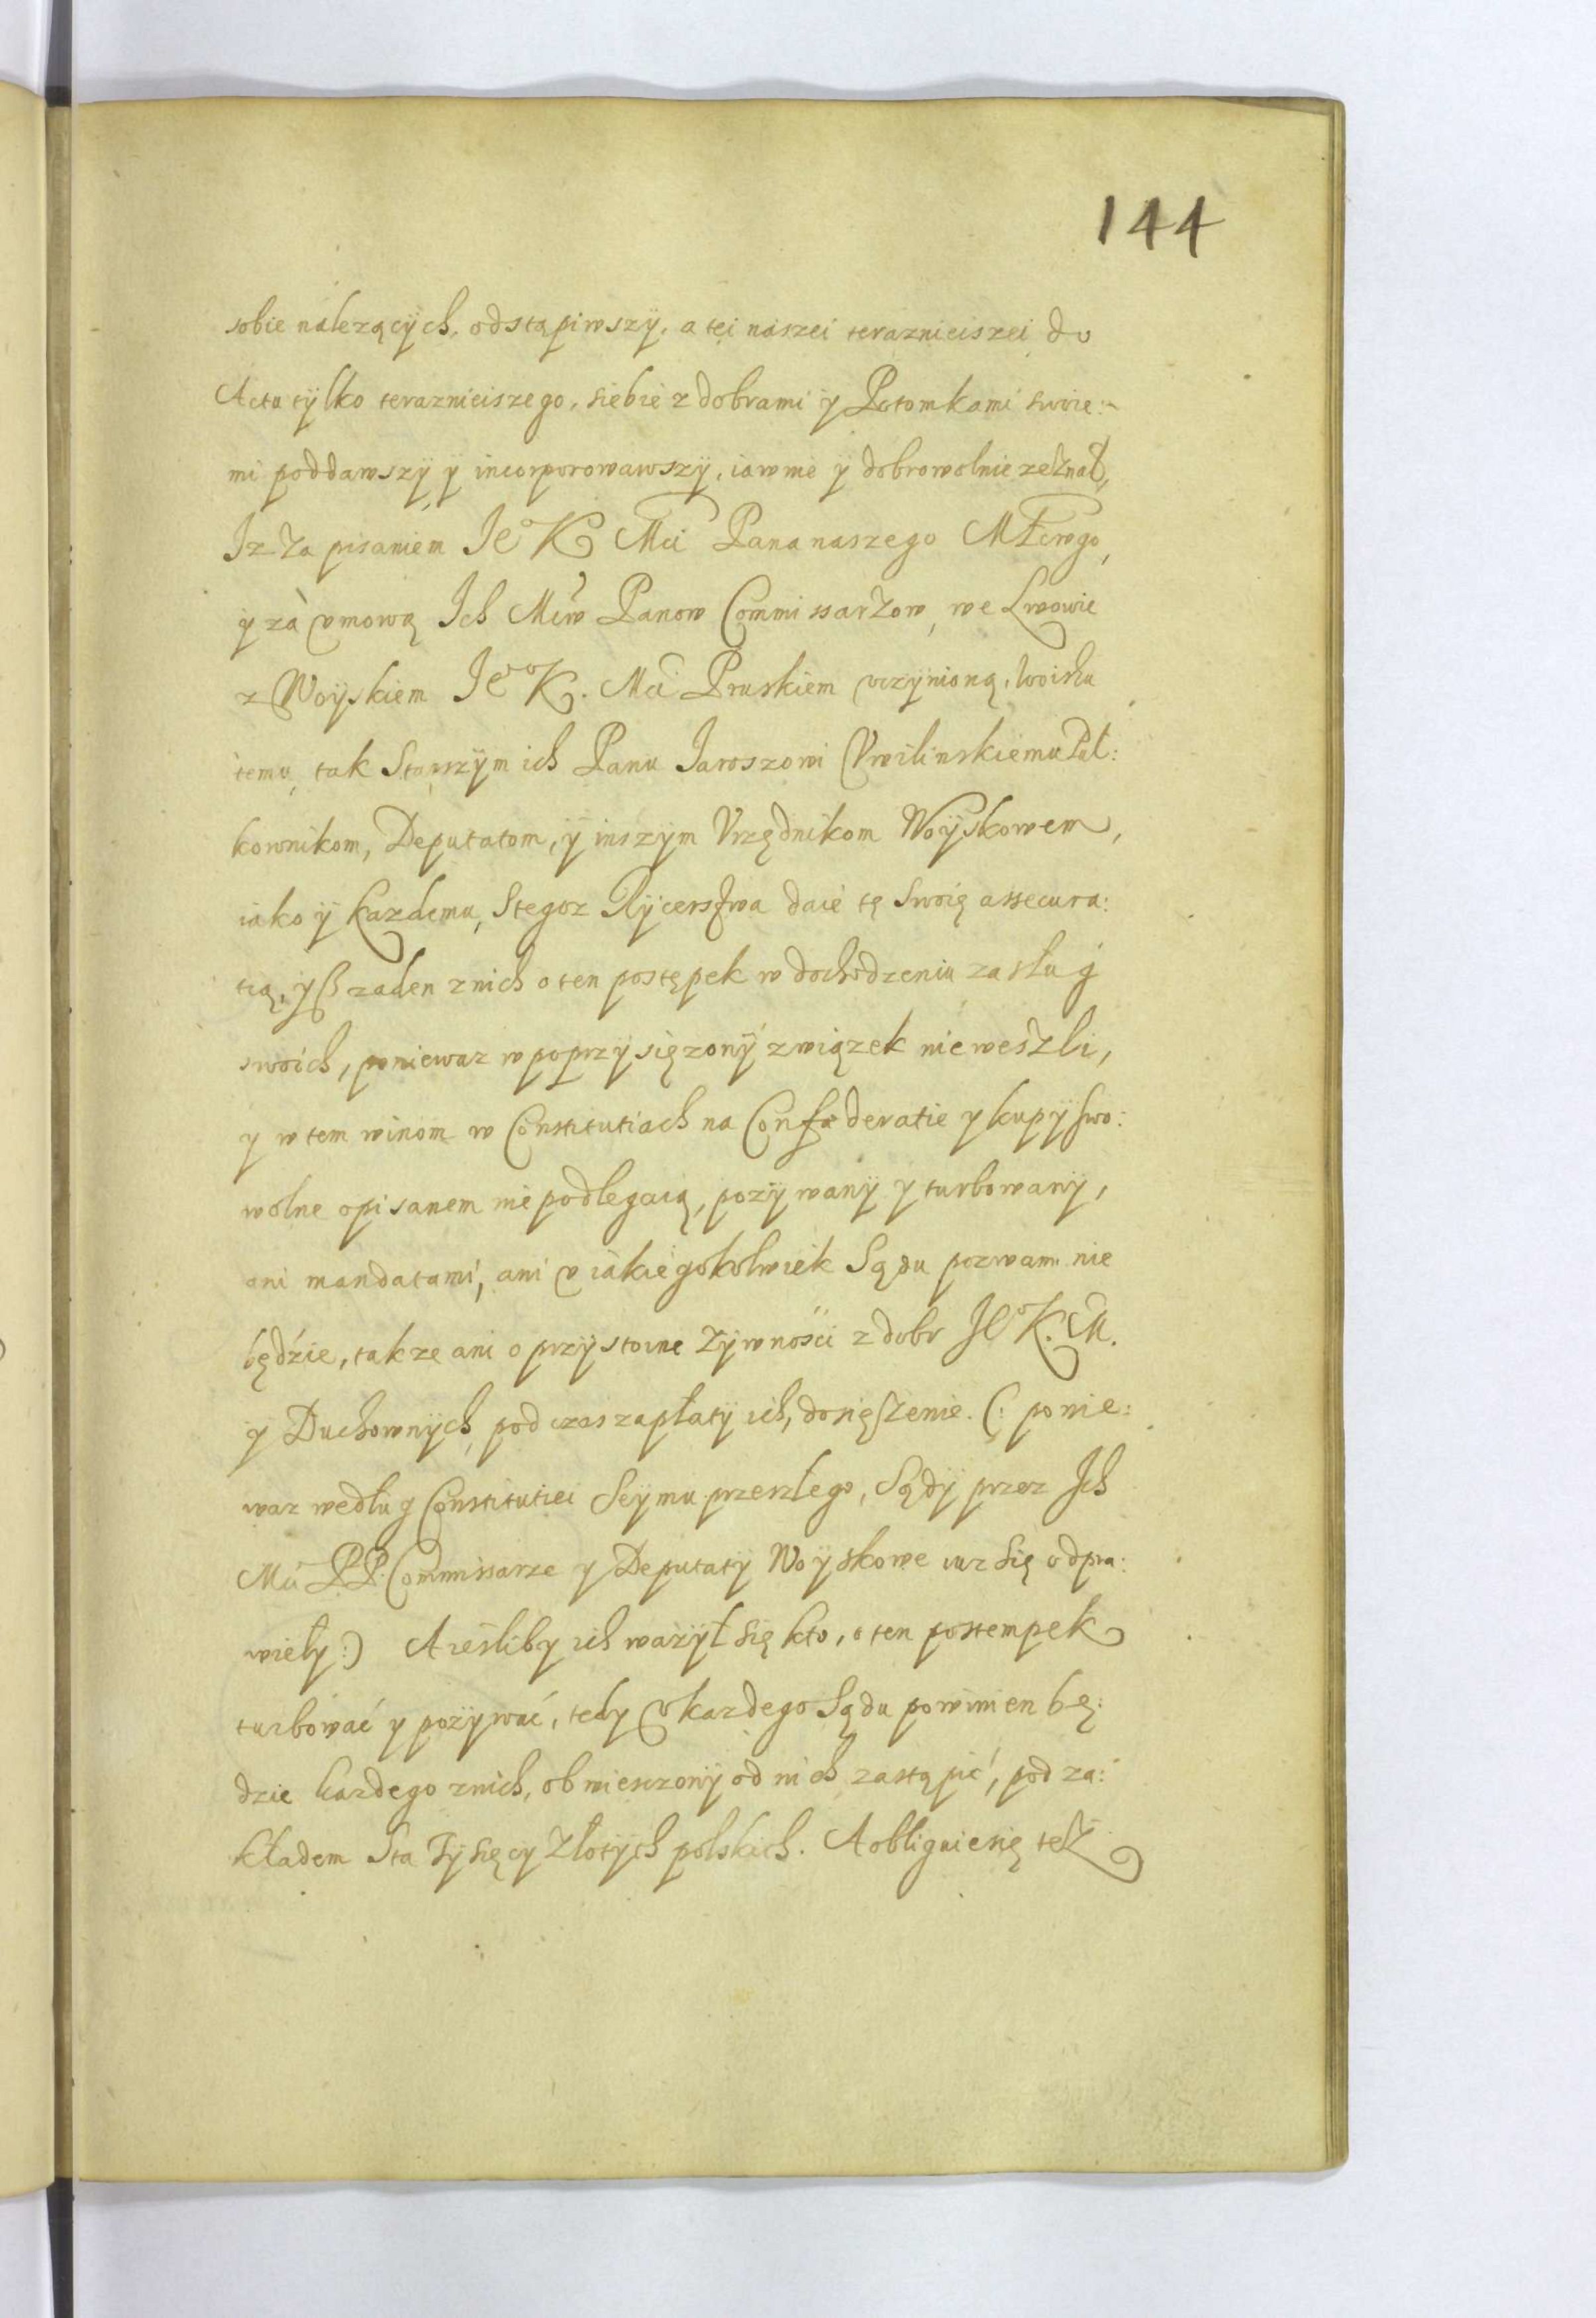 144
sobie należących, odstąpiwszy, a tei naszei teraznieiszei do
Actu tylko teraznieiszego, siebie z dobrami y Potomkami swoie:
mi poddawszy y incorporowawszy, iawnie y dobrowolnie zeznał,
Iz za pisaniem Je° K Mci Pana naszego Młcwgo,
y zà vmową Ich Mciw Panow Commissarzow, we Lwowie
z Woyskiem Je° K. Mci Pruskiem vczynioną, woisku
temu, tak Starszym ich Panu Jaroszowi Vwilinskiemu Puł:
kownikom, Deputatom, y inszym Vrzędnikom Woyskowem,
iako y kazdemu, Stegoz Rycerstwa daie tę swoię assecura:
tią, yß zaden z nich o ten postępek w dochodzeniu zasług
swoich, poniewaz w poprzysięzony związek nie weszli,
y w tem winom w Constitutiach na Confœderatie y kupy swo:
wolne opisanem nie podlegaią, pozywany y turbowany,
ani mandatami, ani v iakiegokolwiek Sądu pozwani nie
będzie, takze ani o przystoine zywności z dobr Je° K. M.
y Duchownych, pod czas zapłaty ich, dosięszenie. (: ponie:
waz według Constitutiei Seymu przeszłego, Sądy przez Ich
Mci PP. Commissarze y Deputaty Woyskowe iuz się odpra:
wieły :) A ieśliby ich wazył się kto, o ten postempek
turbować y pozywać, tedy v kazdego Sądu powinien bę:
dzie kazdego z nich, obwieszczony od nich zastąpić, pod za:
kładem Sta Tysięcy Złotych polskich. A obliguie się tesz